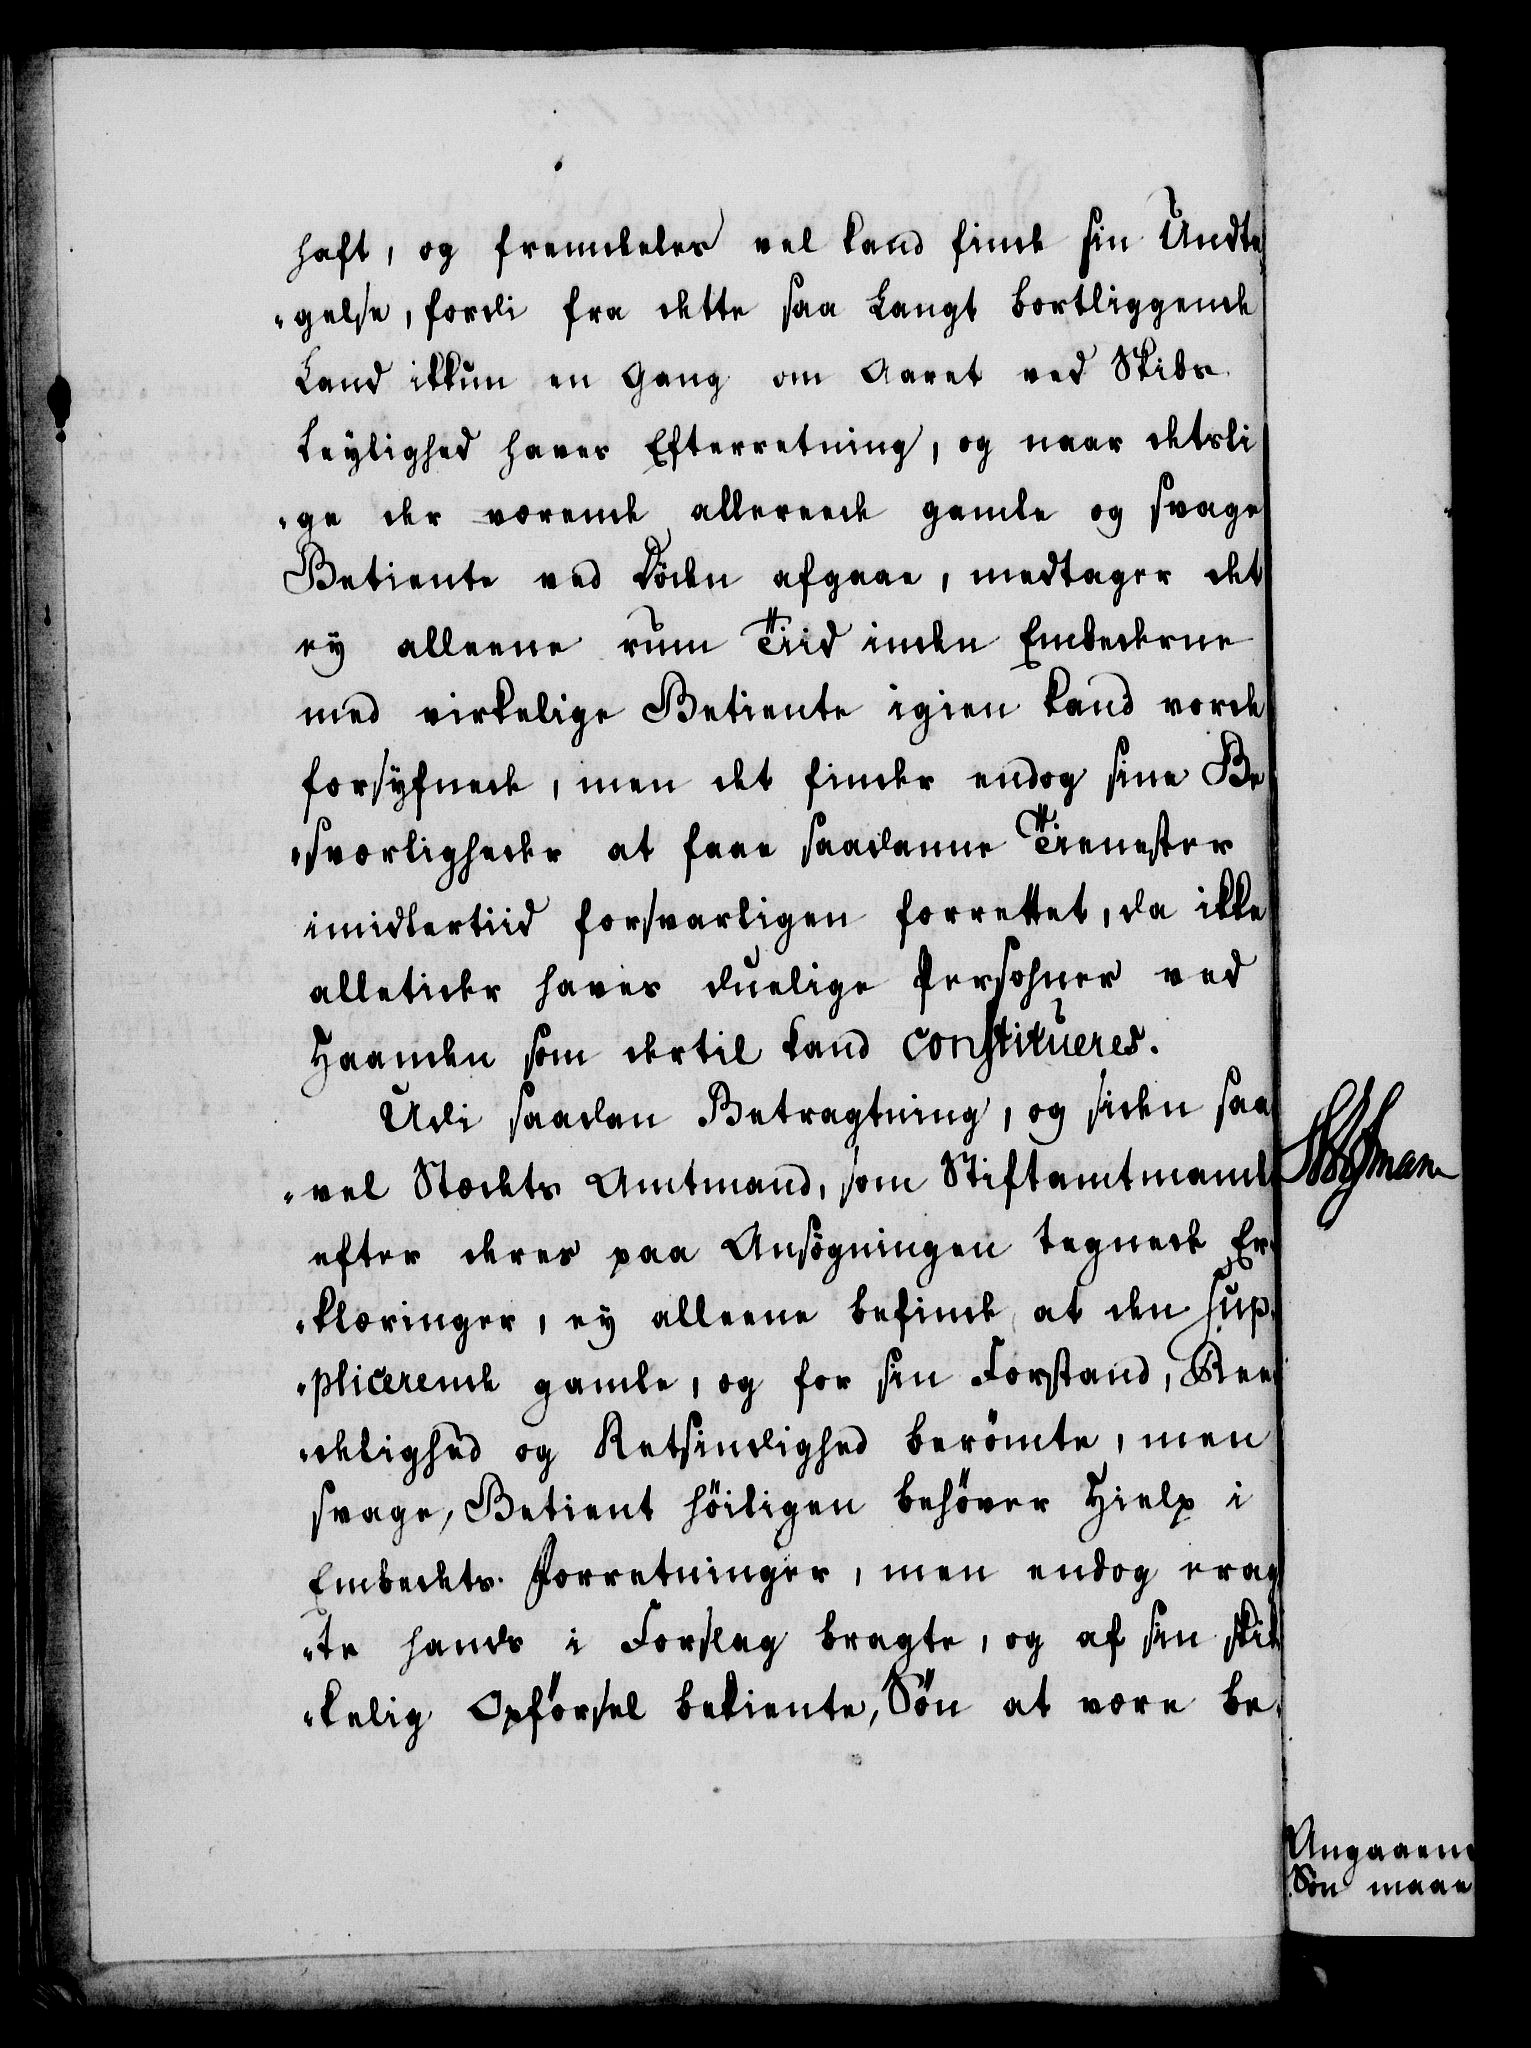 haft, og fremdeles vel kand finde sin Undta
-gelse, fordi fra dette saa langt bortliggende
Land ikkun en Gang om Aaret ved Skibs
Leylighed haves Efterretning, og naar detsli
-ge der værende allereede gamle og svage
Betiente ved Döden afgaae, medtager det
ey alleene rum Tiid inden Embederne
med virkelige Betiente igien kand vorde
forsÿfnede, men det finder endog sine Be
-sværligheder at faae saadanne Tienester
imidlertiid forsvarligen forrettet, da ikke
alletider haves duelige Persohner ved
Haanden som dertil kand constitueres.
Udi saadan Betragtning, og siden saa
-vel Stædets Amtmand, som Stiftamtmand
efter deres paa Ansögningen tegnede Er-
-klæringer, ey alleene befinde, at den sup-
-plicerende gamle, og for sin Forstand, Ree-
-delighed og Retsindighed berömte, men
svage, Betient höiligen behöver Hielp i
Embedets Forretninger, men endog erag
-te hands i Forslag bragte, og af sin skik
-kelig Opförsel bekiente, Sön at være be-
Angaaen
Sön maae